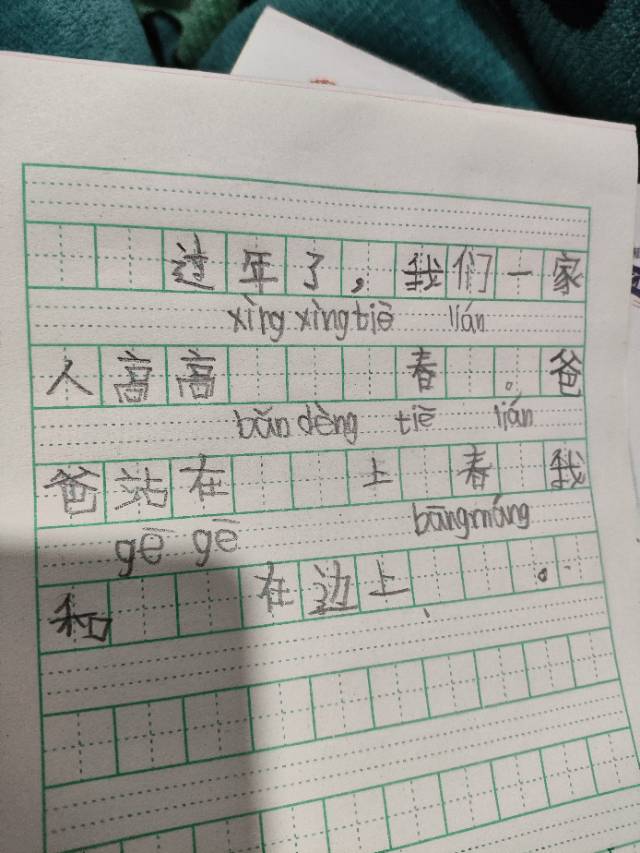 过年了，我们一家
xìng xìng tiē lián
人高高春。爸
bǎn dèng tiē lián
爸站在上春我
gē gē bāng máng
和在边上。